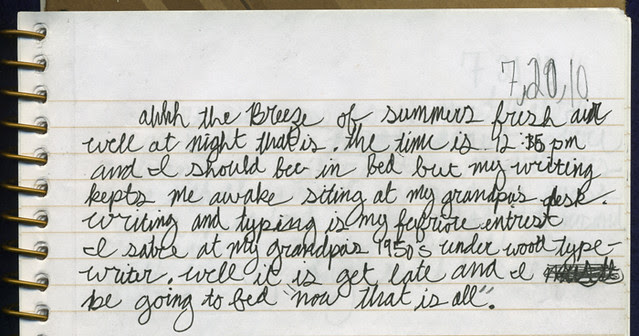 7,20,10
ahhh the Breeze of summers fresh air
well at night that is. the time is 12:35 pm
and I should bee in Bed but my writing
kepts me awake siting at my grandpa's desk.
writing and typing is my favriove entrest
I sat at my grandpas 1950s under wood type-
writer. well it is get late and I
be going to bed "now that is all".